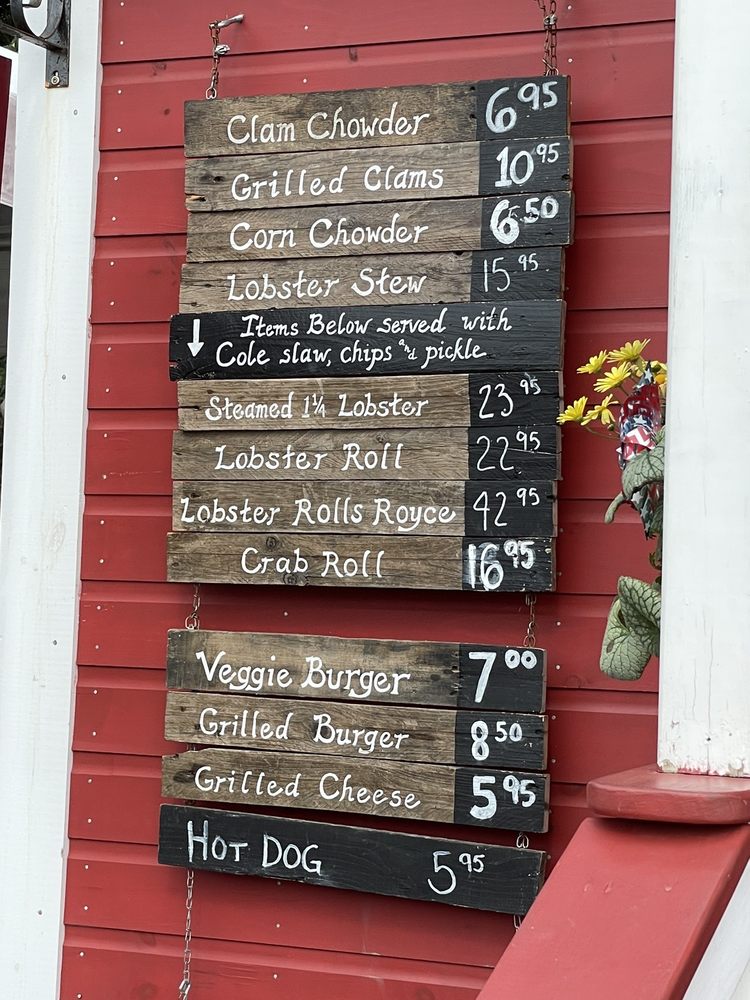 Clam Chowder 6.95
Grilled Clams 10.95
Corn Chowder 6.50
Lobster Stew 15.95
↓ Items Below served with
Cole slaw, chips and pickle
Steamed 1¼ Lobster 23.95
Lobster Roll 22.95
Lobster Rolls Royce 42.95
Crab Roll 16.95
Veggie Burger 7.00
Grilled Burger 8.50
Grilled Cheese 5.95
HOT DOG 5.95